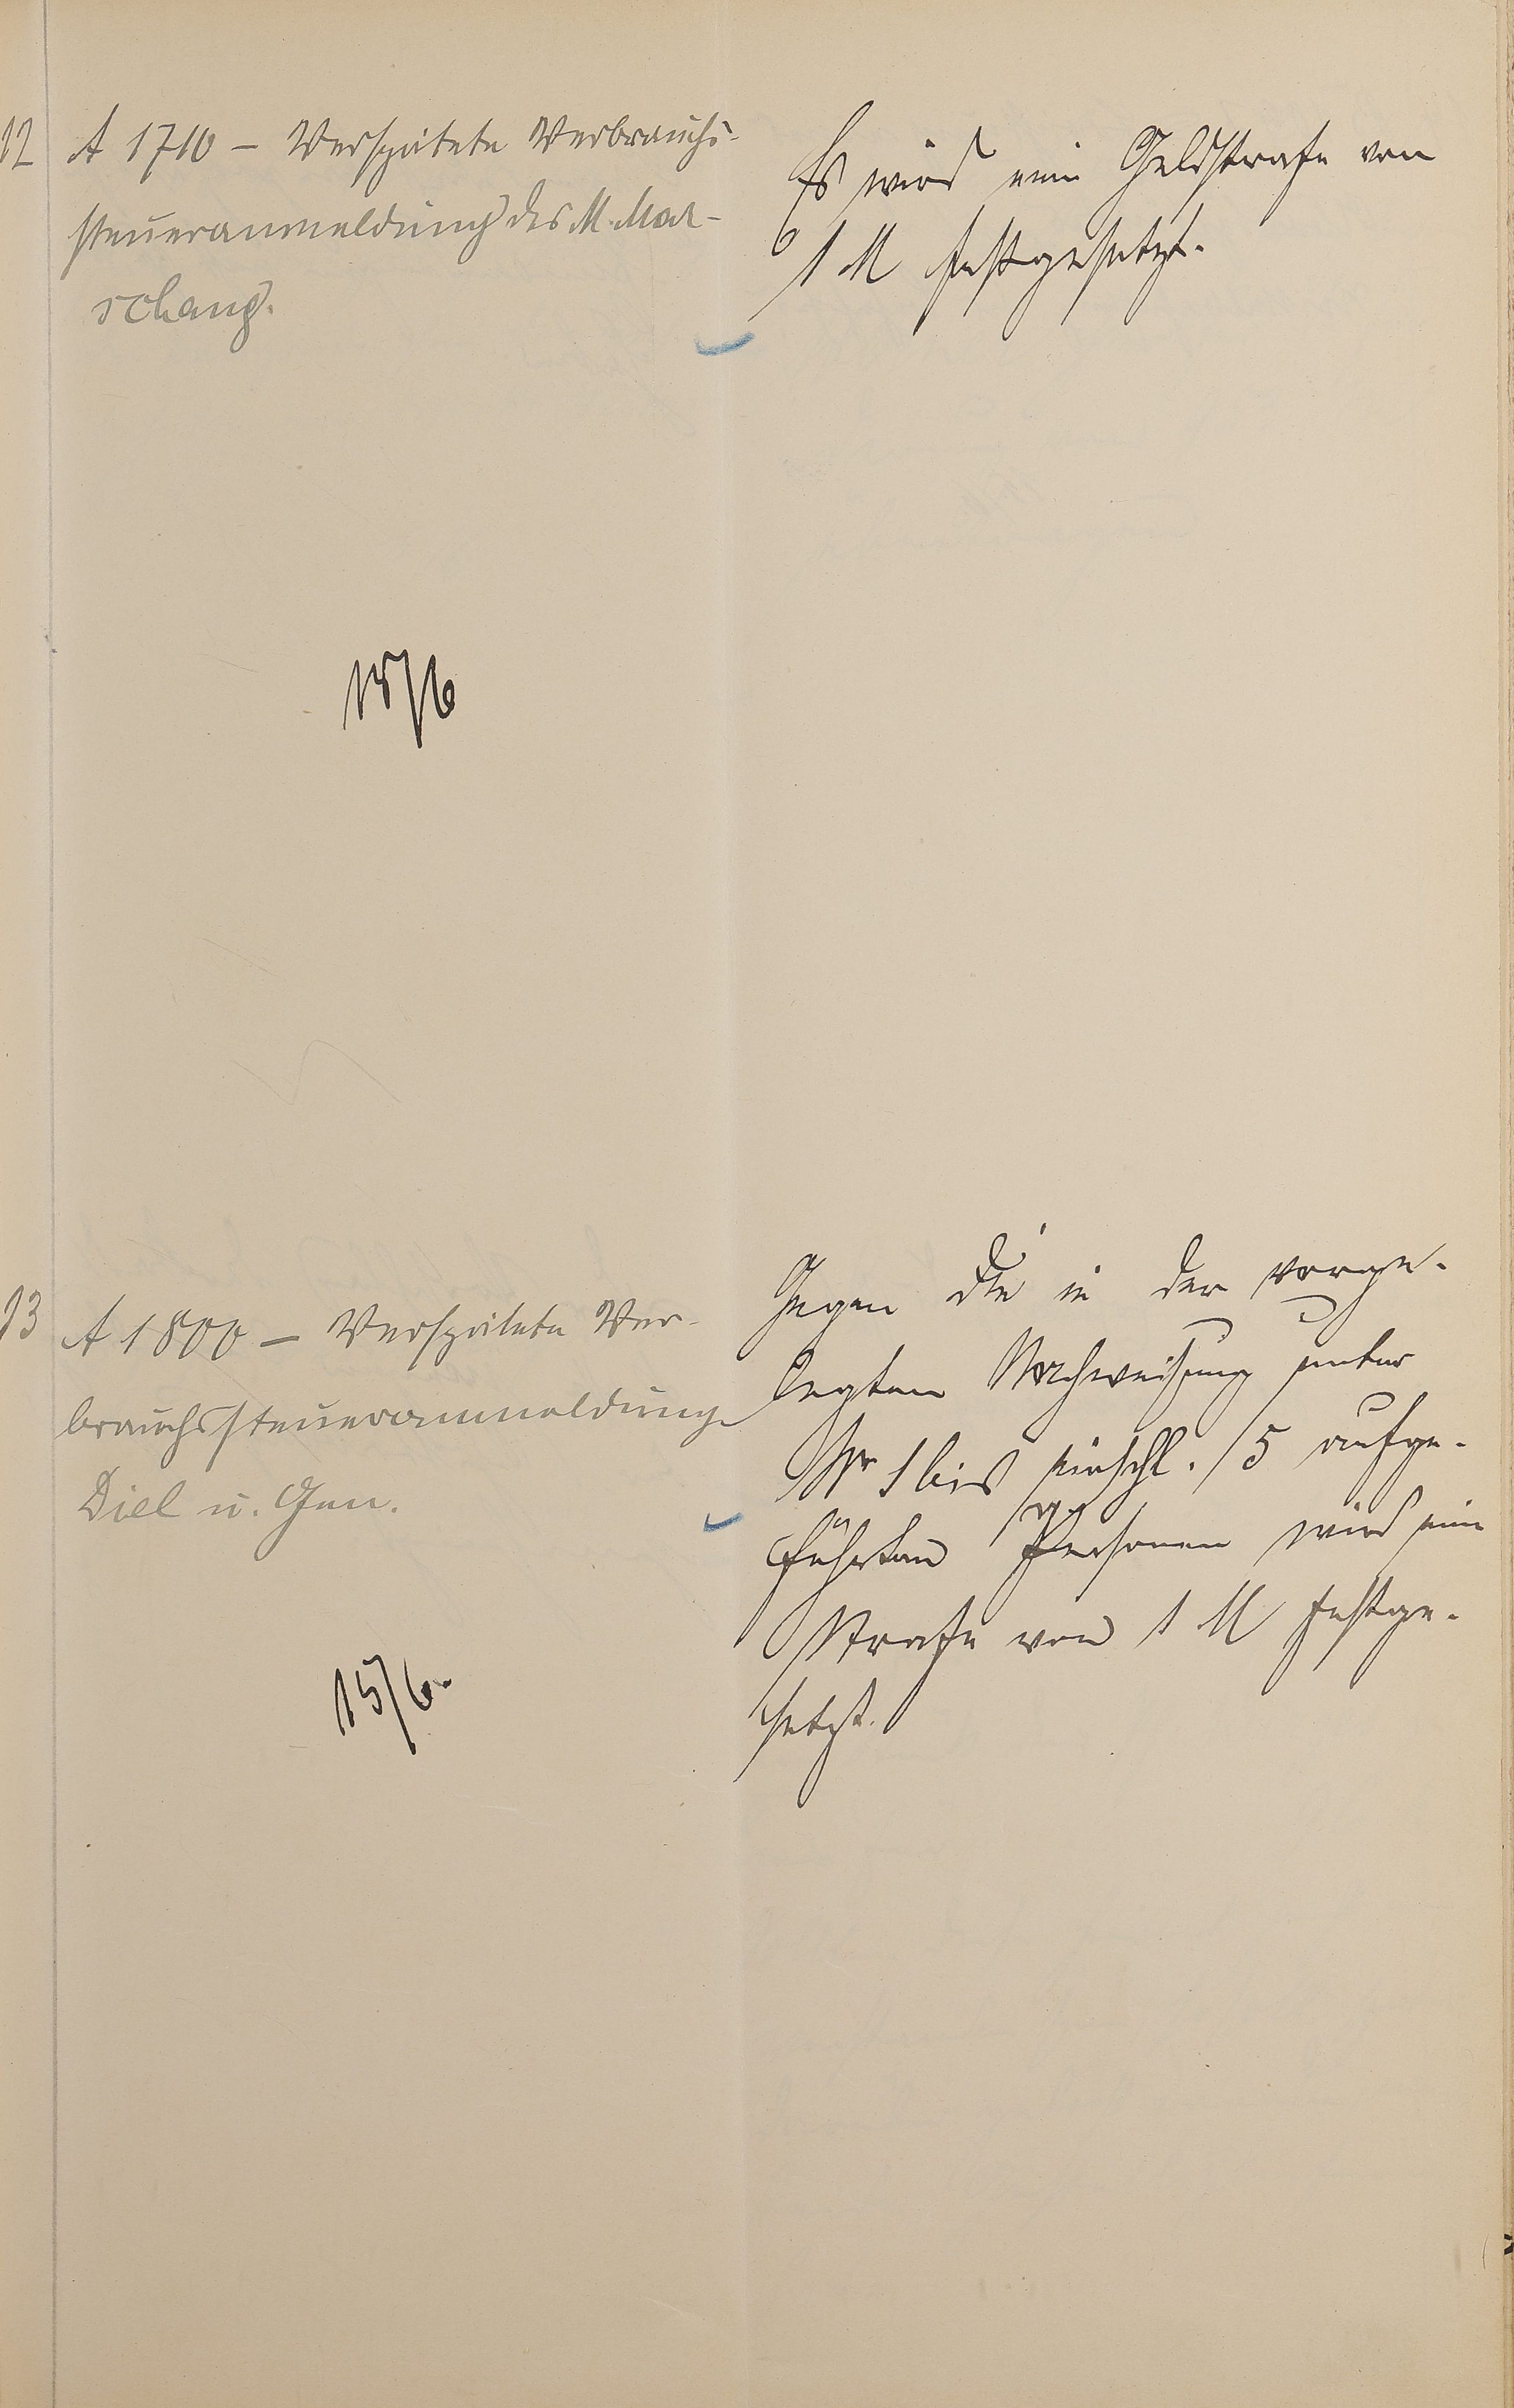 12 A 1710 – Verspätete Verbrauchs-
steueranmeldung des M. Mar-
schang.
Es wird eine Geldstrafe von
1 M festgesetzt.
15/6
13 A 1800 – Verspätete Ver-
brauchssteueranmeldung
Diel u. Gen.
Gegen die in der vorge-
legten Nachweisung unter
Nr 1 bis einschl. 15 aufge-
führten Personen wird eine
Strafe von 1 M festge-
setzt.
15/6.